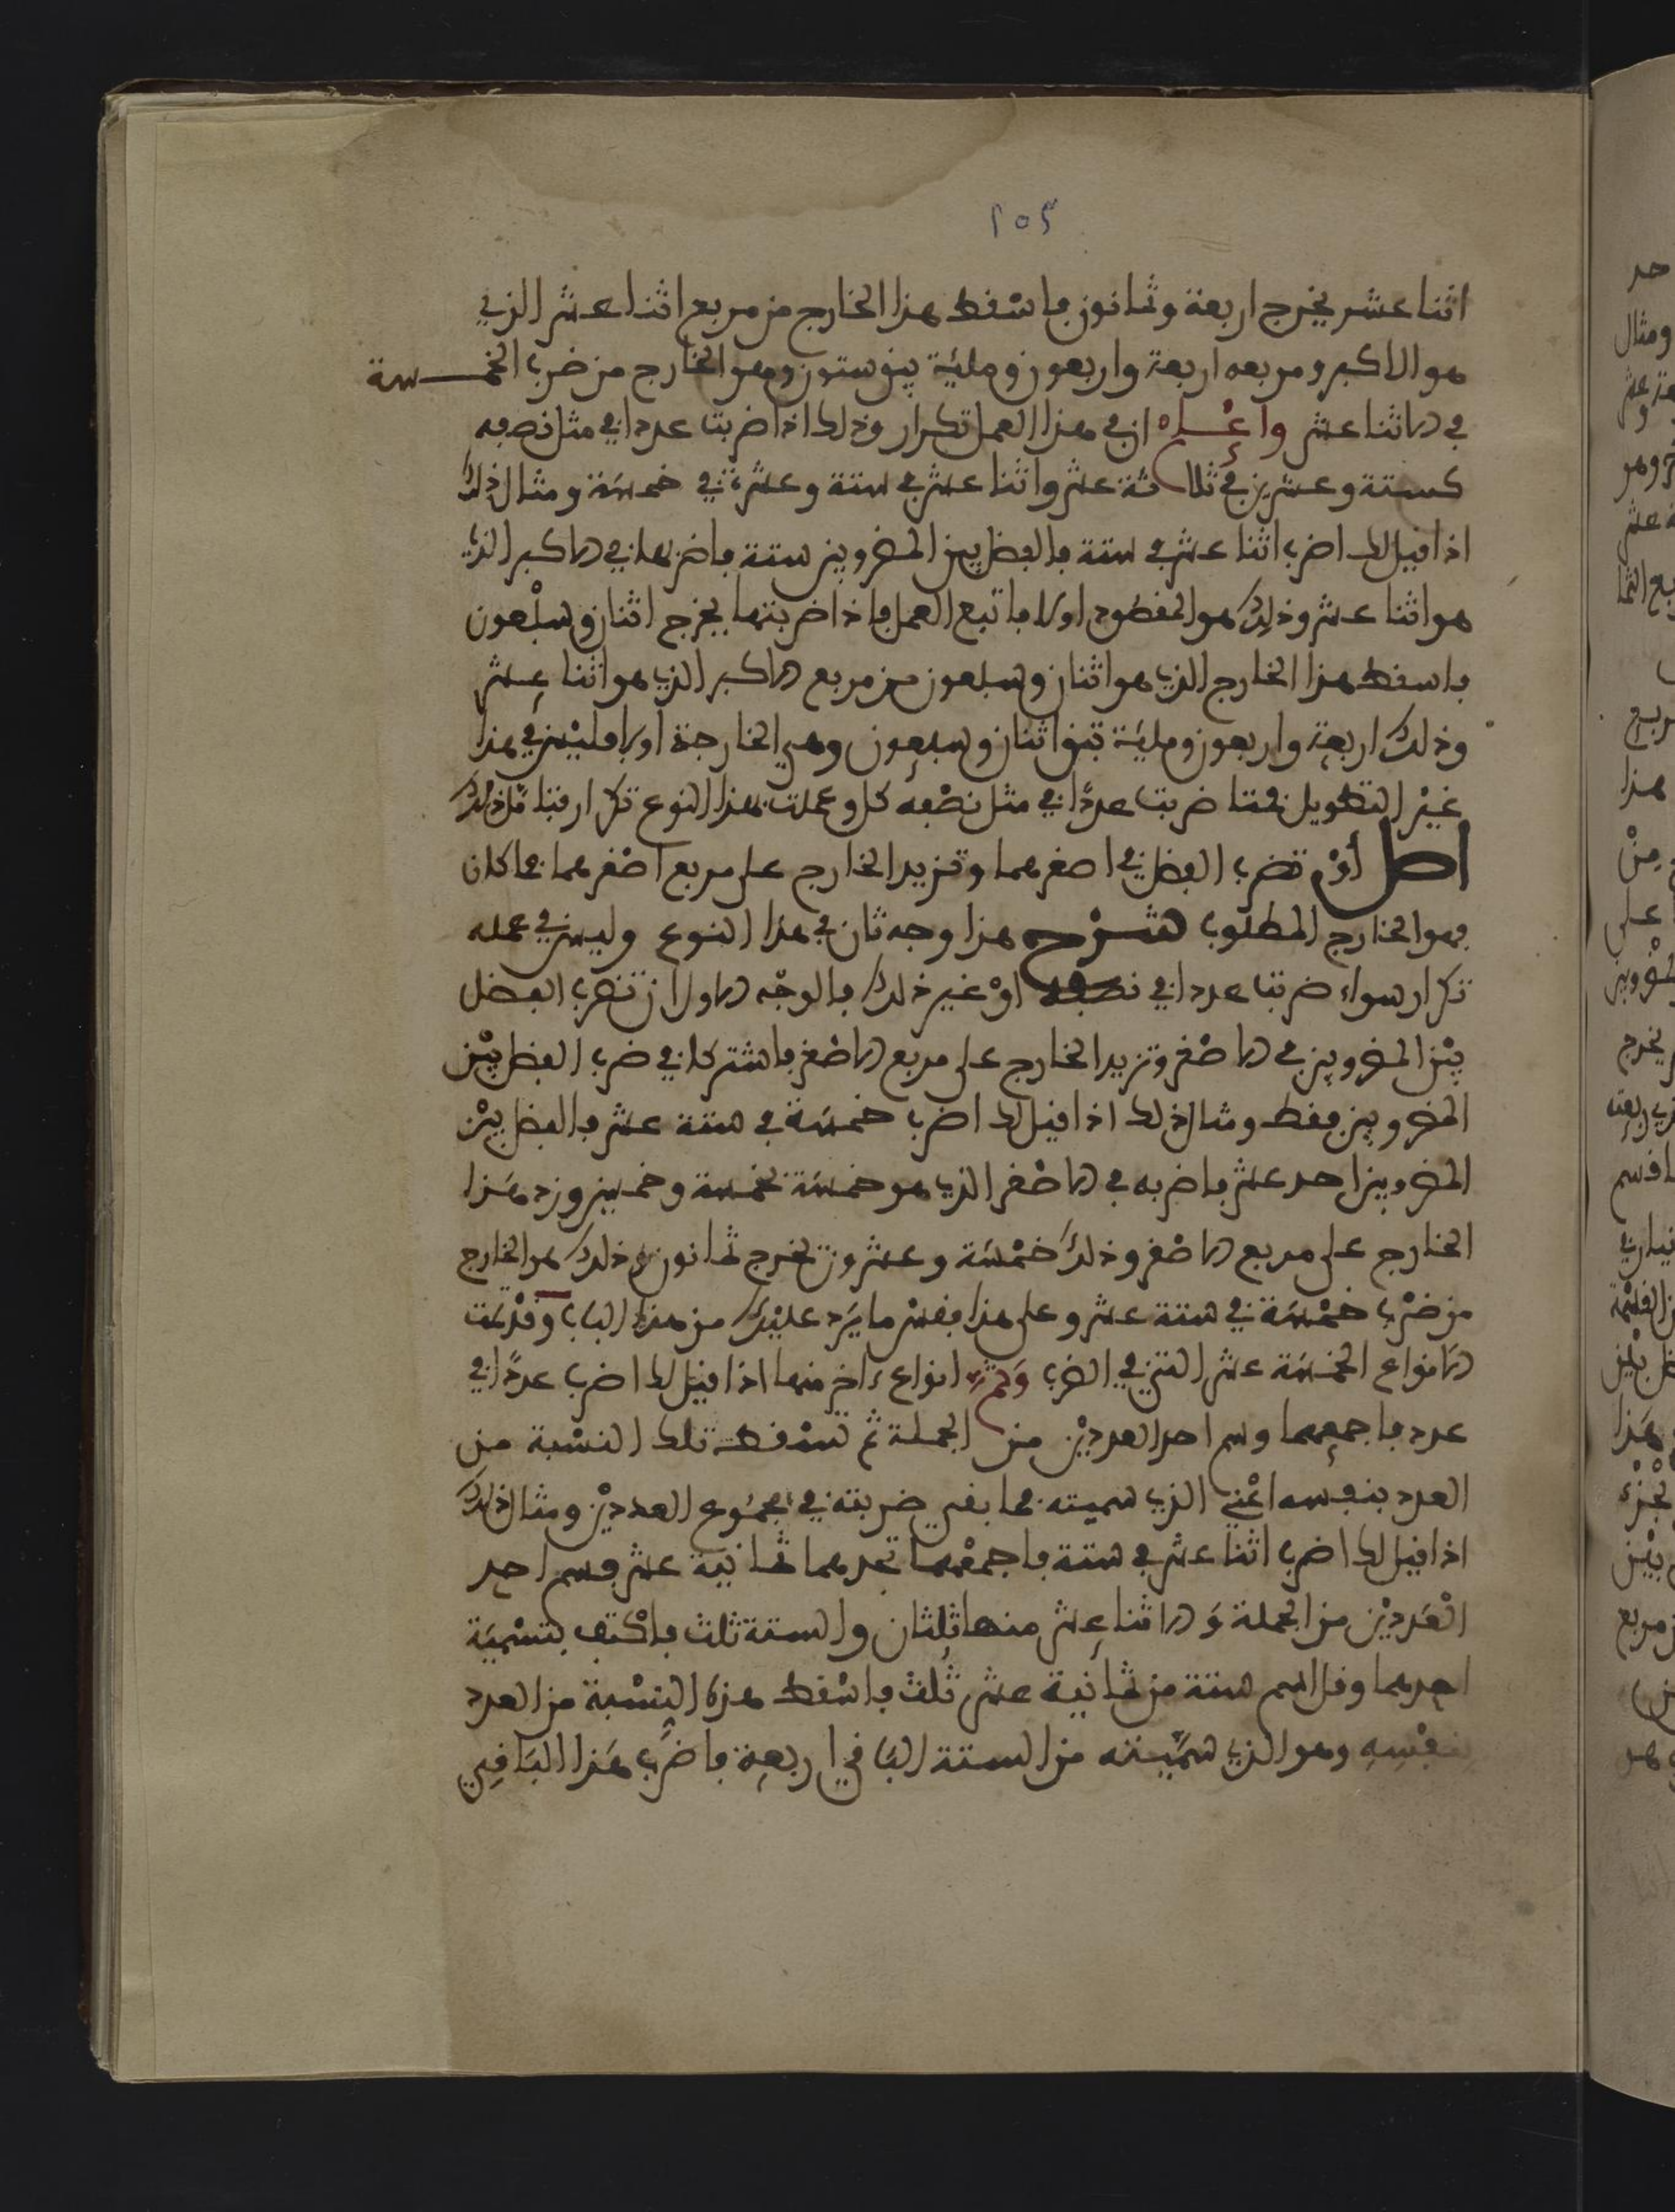 ١٥٢
اثنا عشر يخرج اربعة وثمانون فاسْقط هذا الخارج من مربع اثنا عشر الذي
هو الاكبر ومربعه اربعة واربعون ومائة يبق ستون وهو الخارج من ضرب الخمسة
في الاثنا عشر واعْلم ان في هذا العمل تكرار وذلك اذا ضربت عددا في مثل نصفه
كستة وعشرين في ثلاثة عشر واثنا عشر في ستة وعشرة في خمسة ومثال ذلك
اذا قيل لك اضرب اثنا عشر في ستة فالفضل بين المضروبين ستة فاضربها في الاكبر الذي
هو اثنا عشر وذلك هو المقصود اولا فاتبع العمل فاذا ضربتها يخرج اثنان وسبْعون
فاسقط هذا الخارج الذي هو اثنان وسبعون من مربع الاكبر الذي هو اثنا عشر
وذلك اربعة واربعون ومائة تبق اثنان وسبعون وهي الخارجة اولا فليْس في هذا
غيْر التطويل فمتا ضربت عددًا في مثل نصْفه كل وعملت بهذا النوع تكرار فتامّل ذلك
اصل أوْ تضرب الفضل في اصغرهما وتزيد الخارج على مربع اصْغرهما فما كان
فهو الخارج المطلوب شرْح هذا وجه ثان في هذا النوع وليس في عمله
تكرار سواء ضربت عددا في نصفه اوْ غير ذلك فالوجْه الاول ان تضرب الفضل
بيْن المضروبين في الاصْغر وتزيد الخارج على مربع الاصْغر فاشتركا في ضرب الفضل بيْن
المضروبين فقط ومثال ذلك اذا قيل لك اضرب خمسَة في ستة عشر فالفضل بيْن
المضروبين احد عشر فاضربه في الاصْغر الذي هو خمسَة بخمسة وخمسين وزد هَذا
الخارج على مربع الاصْغر وذلكَ خمْسَة وعشرون تخرج ثمانون وذلك هو الخارج
من ضرْب خمْسَة في ستة عشر وعلى هذا فقسْ ما يَرد عليْك من هذا الباب وقدْ تمت
الانواع الخمْسَة عشر التي في الضرب وَثم انواع اخر منها اذا قيل لك اضرب عددًا في
عدد فاجمعهما وسم احد العدديْن من الجملة ثم تسْقط تلك النسْبة من
العدد بنفسه اعْني الذي سميته فما بقي ضربته في مجمُوع العدديْن ومثال ذلك
اذا قيل لك اضرب اثنا عشر في ستة فاجمعْهما تجدهما ثمانية عشر فسم احد
العَدديْن من الجملة وَالاثنا عشر منها ثلثان والستة ثلث فاكْتف بتسْميَة
احدهما وقل اسم ستة من ثمانية عشر ثلث فاسْقط هذه النِسْبة من العدد
بنفْسِهِ وهو الذي سمَّيته من الستة الباقي اربعة فاضرب هَذا البَاقِي